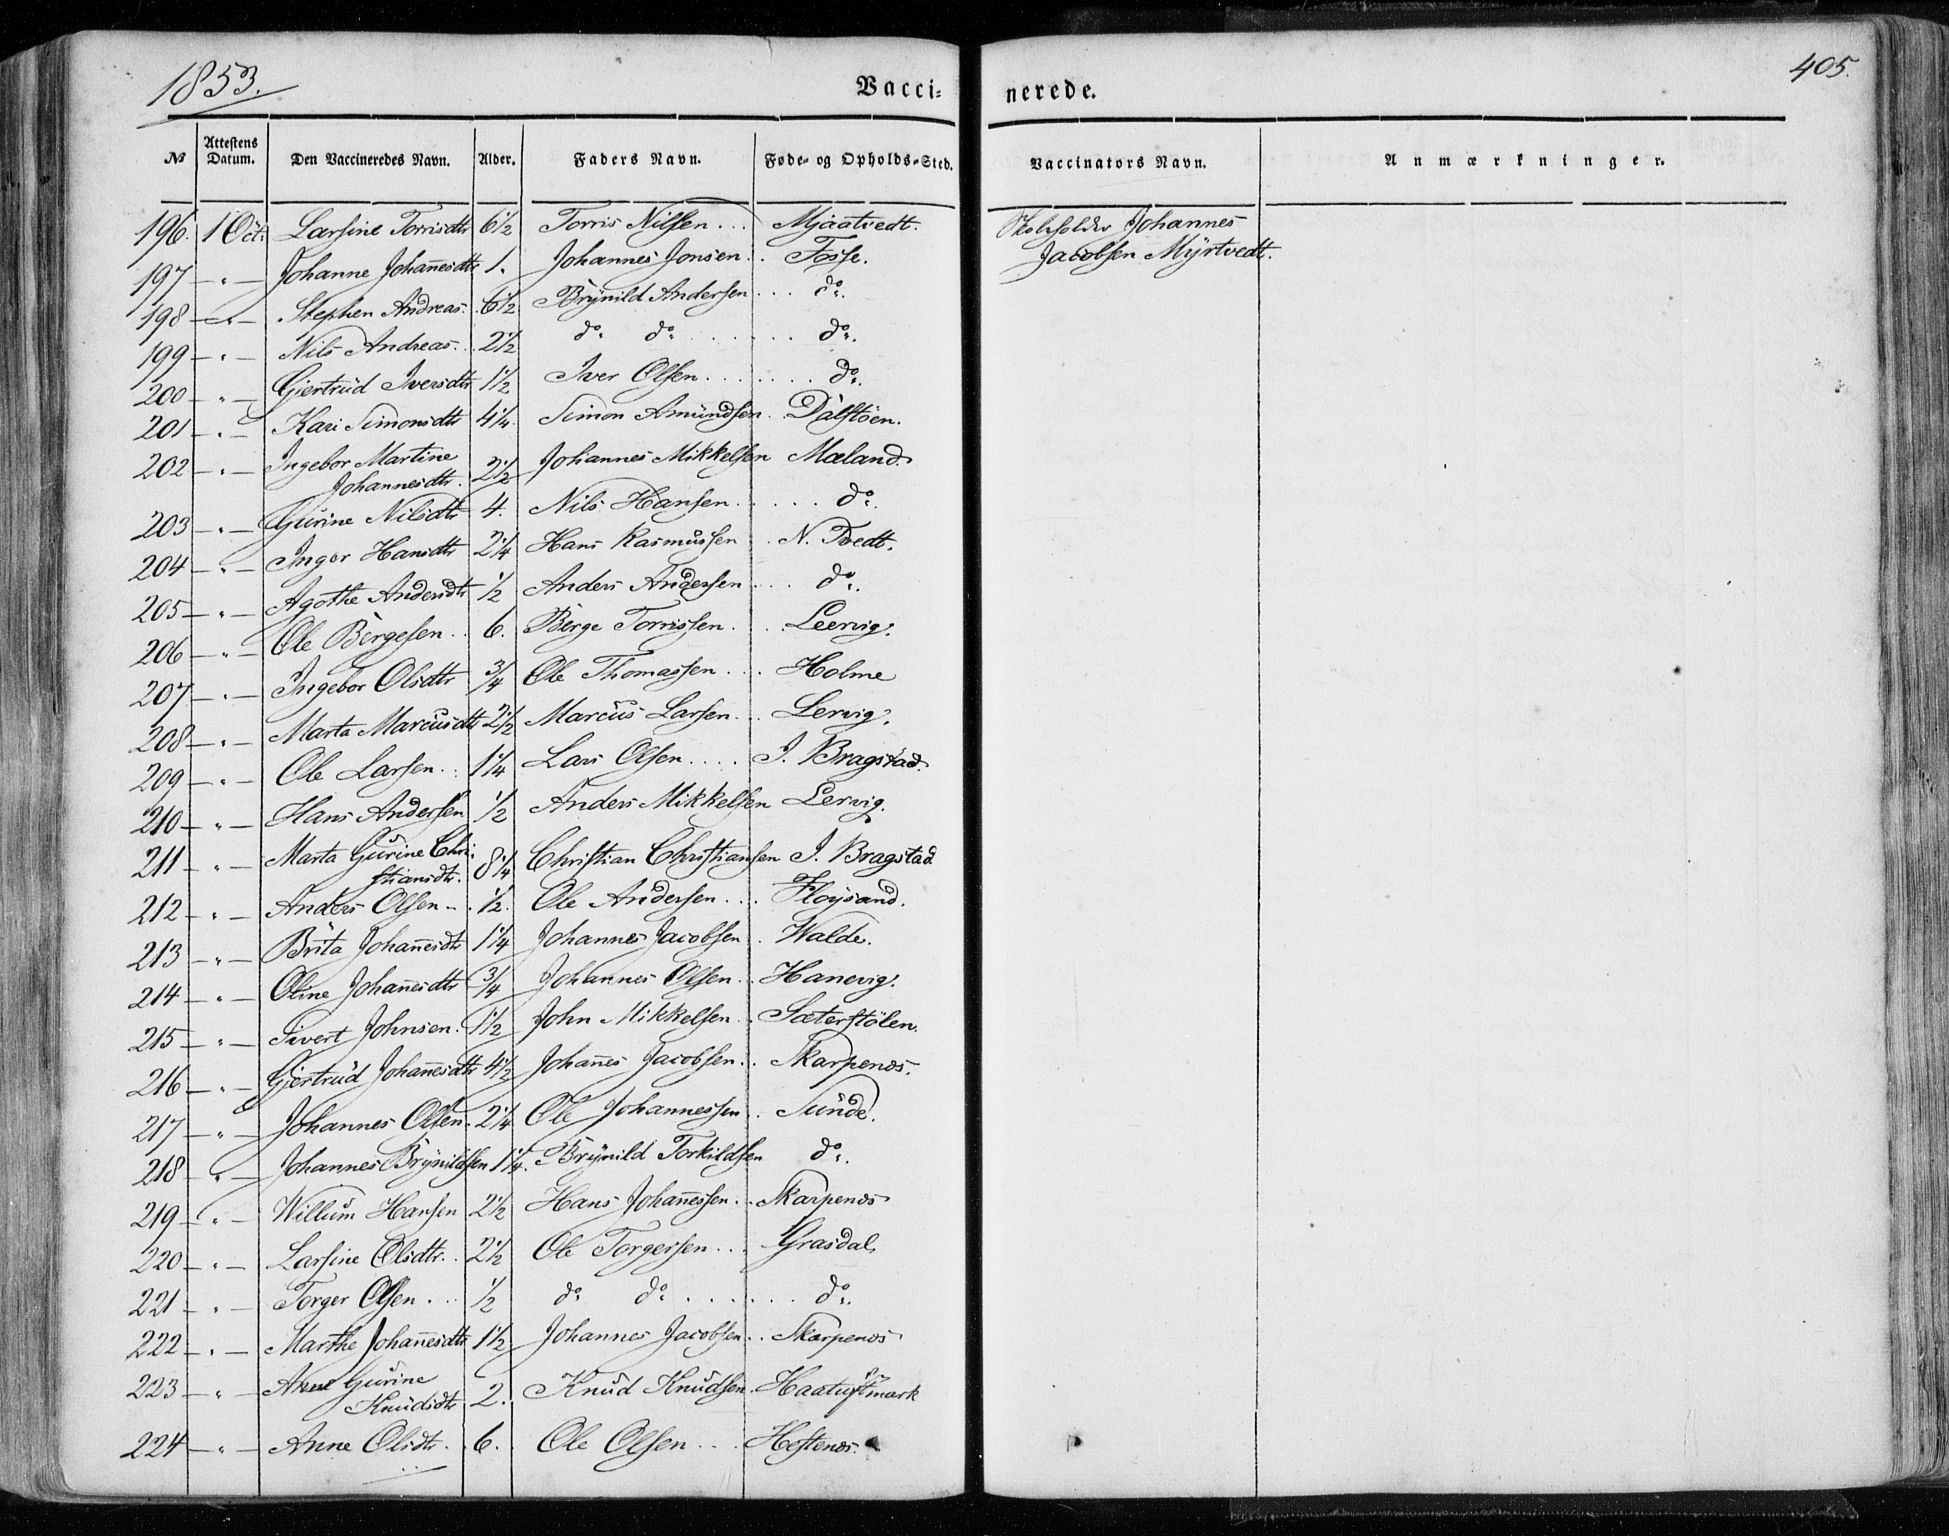 1853.
Vacci-
nerede.
405.
№ Attestens Datum. Den Vaccineredes Navn. Alder. Faders Navn. Føde- og Opholds-Sted. Vaccinators Navn. Anmærkninger.
196. 1 Oct. Larsine Torrisdtr 6½ Torris Nilsen... Mjaatvedt. Skoleholder Johannes
Jacobsen Myrtvedt.
197 — " — Johanne Johan̄esdtr 1. Johannes Jonsen.. Fosse.
198 — " — Stephen Andreas. 6½ Brynild Andersen... do.
199 — " — Nils Andreas.. 2½ do. do....... do.
200 — " — Gjertrud Iversdtr 1½ Iver Olsen....... do.
201 — " — Kari Simonsdtr 4¼. Simon Amundsen.. Dalstöen.
202 — " — Ingebor Martine
Johannesdtr. 2½ Johannes Mikkelsen Mæland.
203 — " — Gurine Nilsdtr 4. Nils Hansen..... do.
204 — " — Inger Hansdtr 2¼ Hans Rasmussen.. N. Tvedt.
205 — " — Agothe Andersdtr ½ Anders Andersen... do.
206 — " — Ole Børgesen.. 6. Børge Torrissen... Leervig.
207 — " — Ingebor Olsdtr ¾ Ole Thomassen... Holme
208 — " — Marta Marcusdtr 2½ Marcus Larsen... Lervig.
209 — " — Ole Larsen.. 1¼ Lars Olsen.... I. Bragstad.
210 — " — Hans Andersen ½ Anders Mikkelsen Lervig.
211 — " — Marta Gurine Chri-
stiansdtr. 8¼ Christian Christiansen I. Bragstad
212 — " — Anders Olsen -. ½. Ole Andersen... Floysand.
213 — " — Brita Johan̄esdtr 1¼ Johannes Jacobsen.. Walde.
214 — " — Oline Johan̄esdtr ¾ Johannes Olsen.. Hanevig.
215 — " — Sivert Johnsen. 1½ John Mikkelsen.. Sæterstölen.
216 — " — Gjertrud Johan̄esdtr 4½ Johan̄es Jacobsen.. Skarpenæs.
217 — " — Johannes Olsen. 2¼ Ole Johannessen. Sunde.
218 — " — Johannes Brynildsen 1¼. Brynild Torkildsen do.
219 — " — Willum Hansen 2½ Hans Johan̄essen.. Skarpenæs
220 — " — Larsine Olsdtr.. 2½ Ole Torgersen... Grasdal.
221 — " — Torger Olsen... ½ do. do....... do.
222 — " — Marthe Johan̄esdtr 1½ Johannes Jacobsen.. Skarpenæs
223 — " — Anne Gurine
Knudsdtr 2. Knud Knudsen. Haatuftmark
224 — " — Anne Olsdtr.. 6. Ole Olsen... Hestenæs.